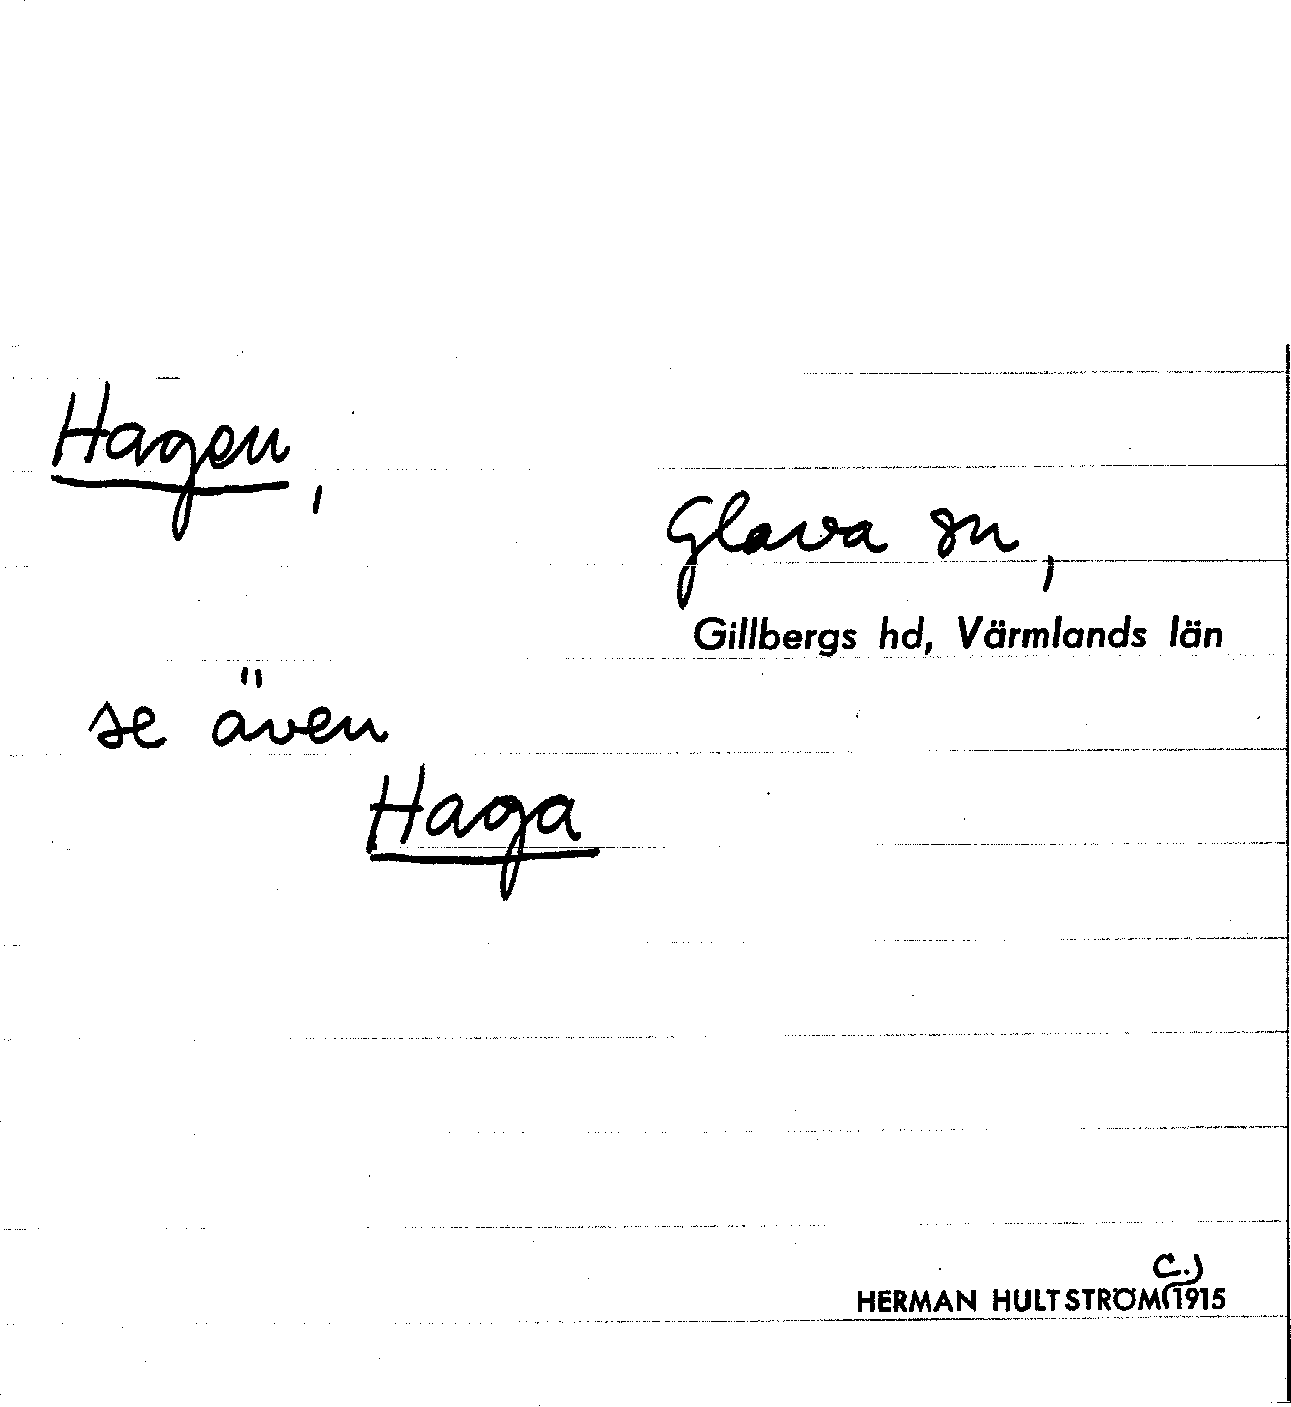 Hagen,
Glava sn,
Gillbergs hd, Värmlands län
se även
Haga
c.)
HERMAN HULTSTRÖM (1915